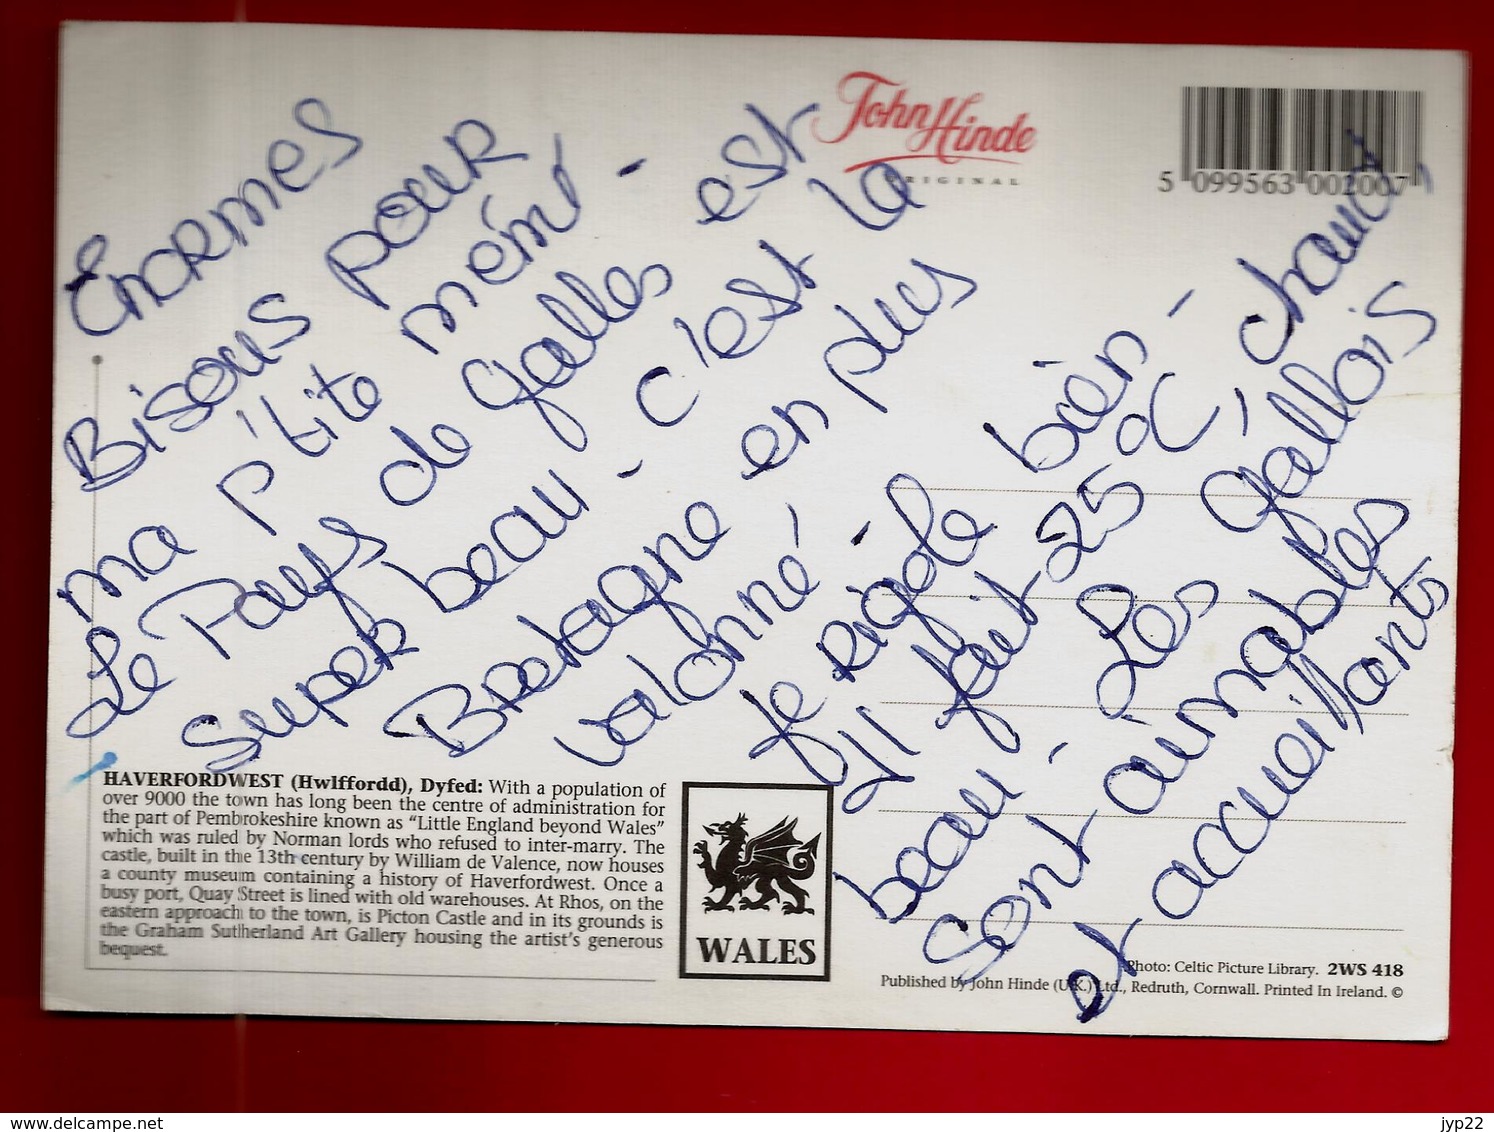 Enormes
Bisous pour
ma p'tite mémé -
Le Pays de Galles est
super beau - c'est la
Bretagne en plus
valonné -
Je rigole bien -
Il fait 25°C, chaud,
beau - Les Gallois
sont aimables
et accueillants
John Hinde
ORIGINAL
5 099563 002007
HAVERFORDWEST (Hwlffordd), Dyfed: With a population of
over 9000 the town has long been the centre of administration for
the part of Pembrokeshire known as "Little England beyond Wales"
which was ruled by Norman lords who refused to inter-marry. The
castle, built in the 13th century by William de Valence, now houses
a county museum containing a history of Haverfordwest. Once a
busy port, Quay Street is lined with old warehouses. At Rhos, on the
eastern approach to the town, is Picton Castle and in its grounds is
the Graham Sutherland Art Gallery housing the artist's generous
bequest.
WALES
Photo: Celtic Picture Library. 2WS 418
Published by John Hinde (U.K.) Ltd., Redruth, Cornwall. Printed In Ireland. ©
www.delcampe.net
jyp22